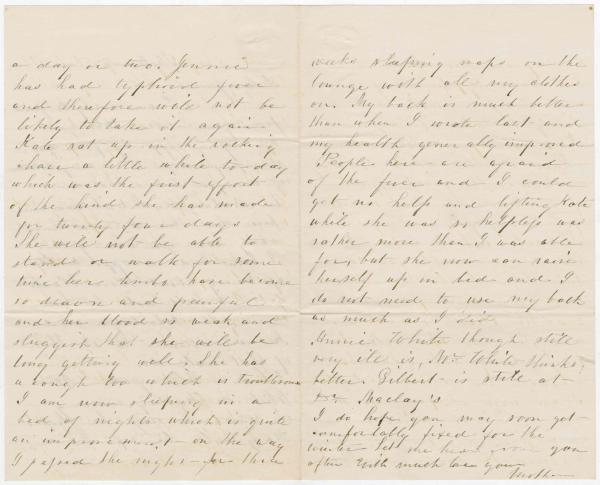 a day or two. Jennie
has had typhoid fever
and therefore will not be
likely to take it again.
Kate sat up in the rocking
chair a little while to-day
which was the first effort
of the kind she has made
for twenty four days
She will not be able to
stand or walk for some
time her limbs have become
so drawn and painful
and her blood so weak and
sluggish that she will be
long getting well. She has
a cough too which is troublesome
I am now sleeping in a
bed of nights which is quite
an improvement on the way
I passed the night for three
weeks sleeping naps on the
lounge with all my clothes
on. My back is much better
than when I wrote last and
my health generally improved
People here are afraid
of the fever and I could
get no help and lifting Kate
while she was so helpless was
rather more than I was able
for, but she now can raise
herself up in bed and I
do not need to use my back
as much as I did
Annie White though still
very ill is, Mr. White thinks,
better. Gilbert is still at
Maclay's
I do hope you may soon get
comfortably fixed for the
winter let me hear from you
often With much love your
Mother